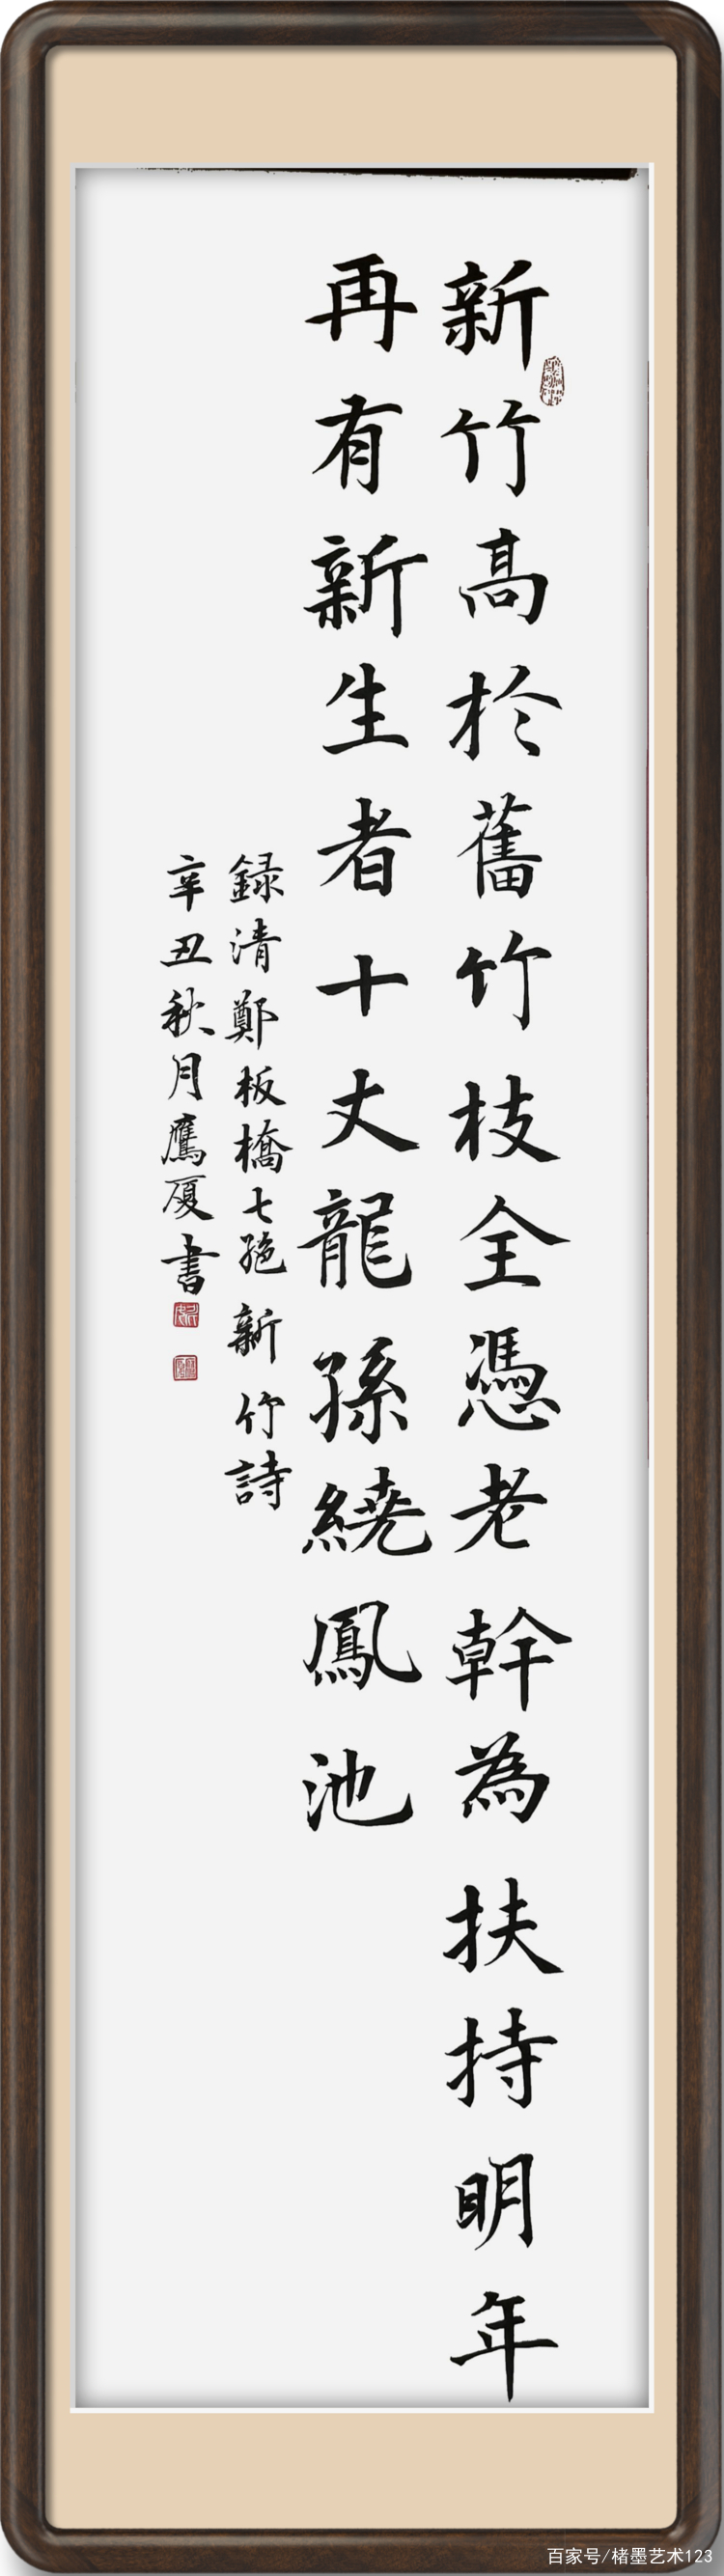 新竹高於舊竹枝全憑老幹為扶持明年
再有新生者十丈龍孫繞鳳池
録清鄭板橋七絕新竹詩
辛丑秋月鷹厦書
百家号/楮墨艺术123